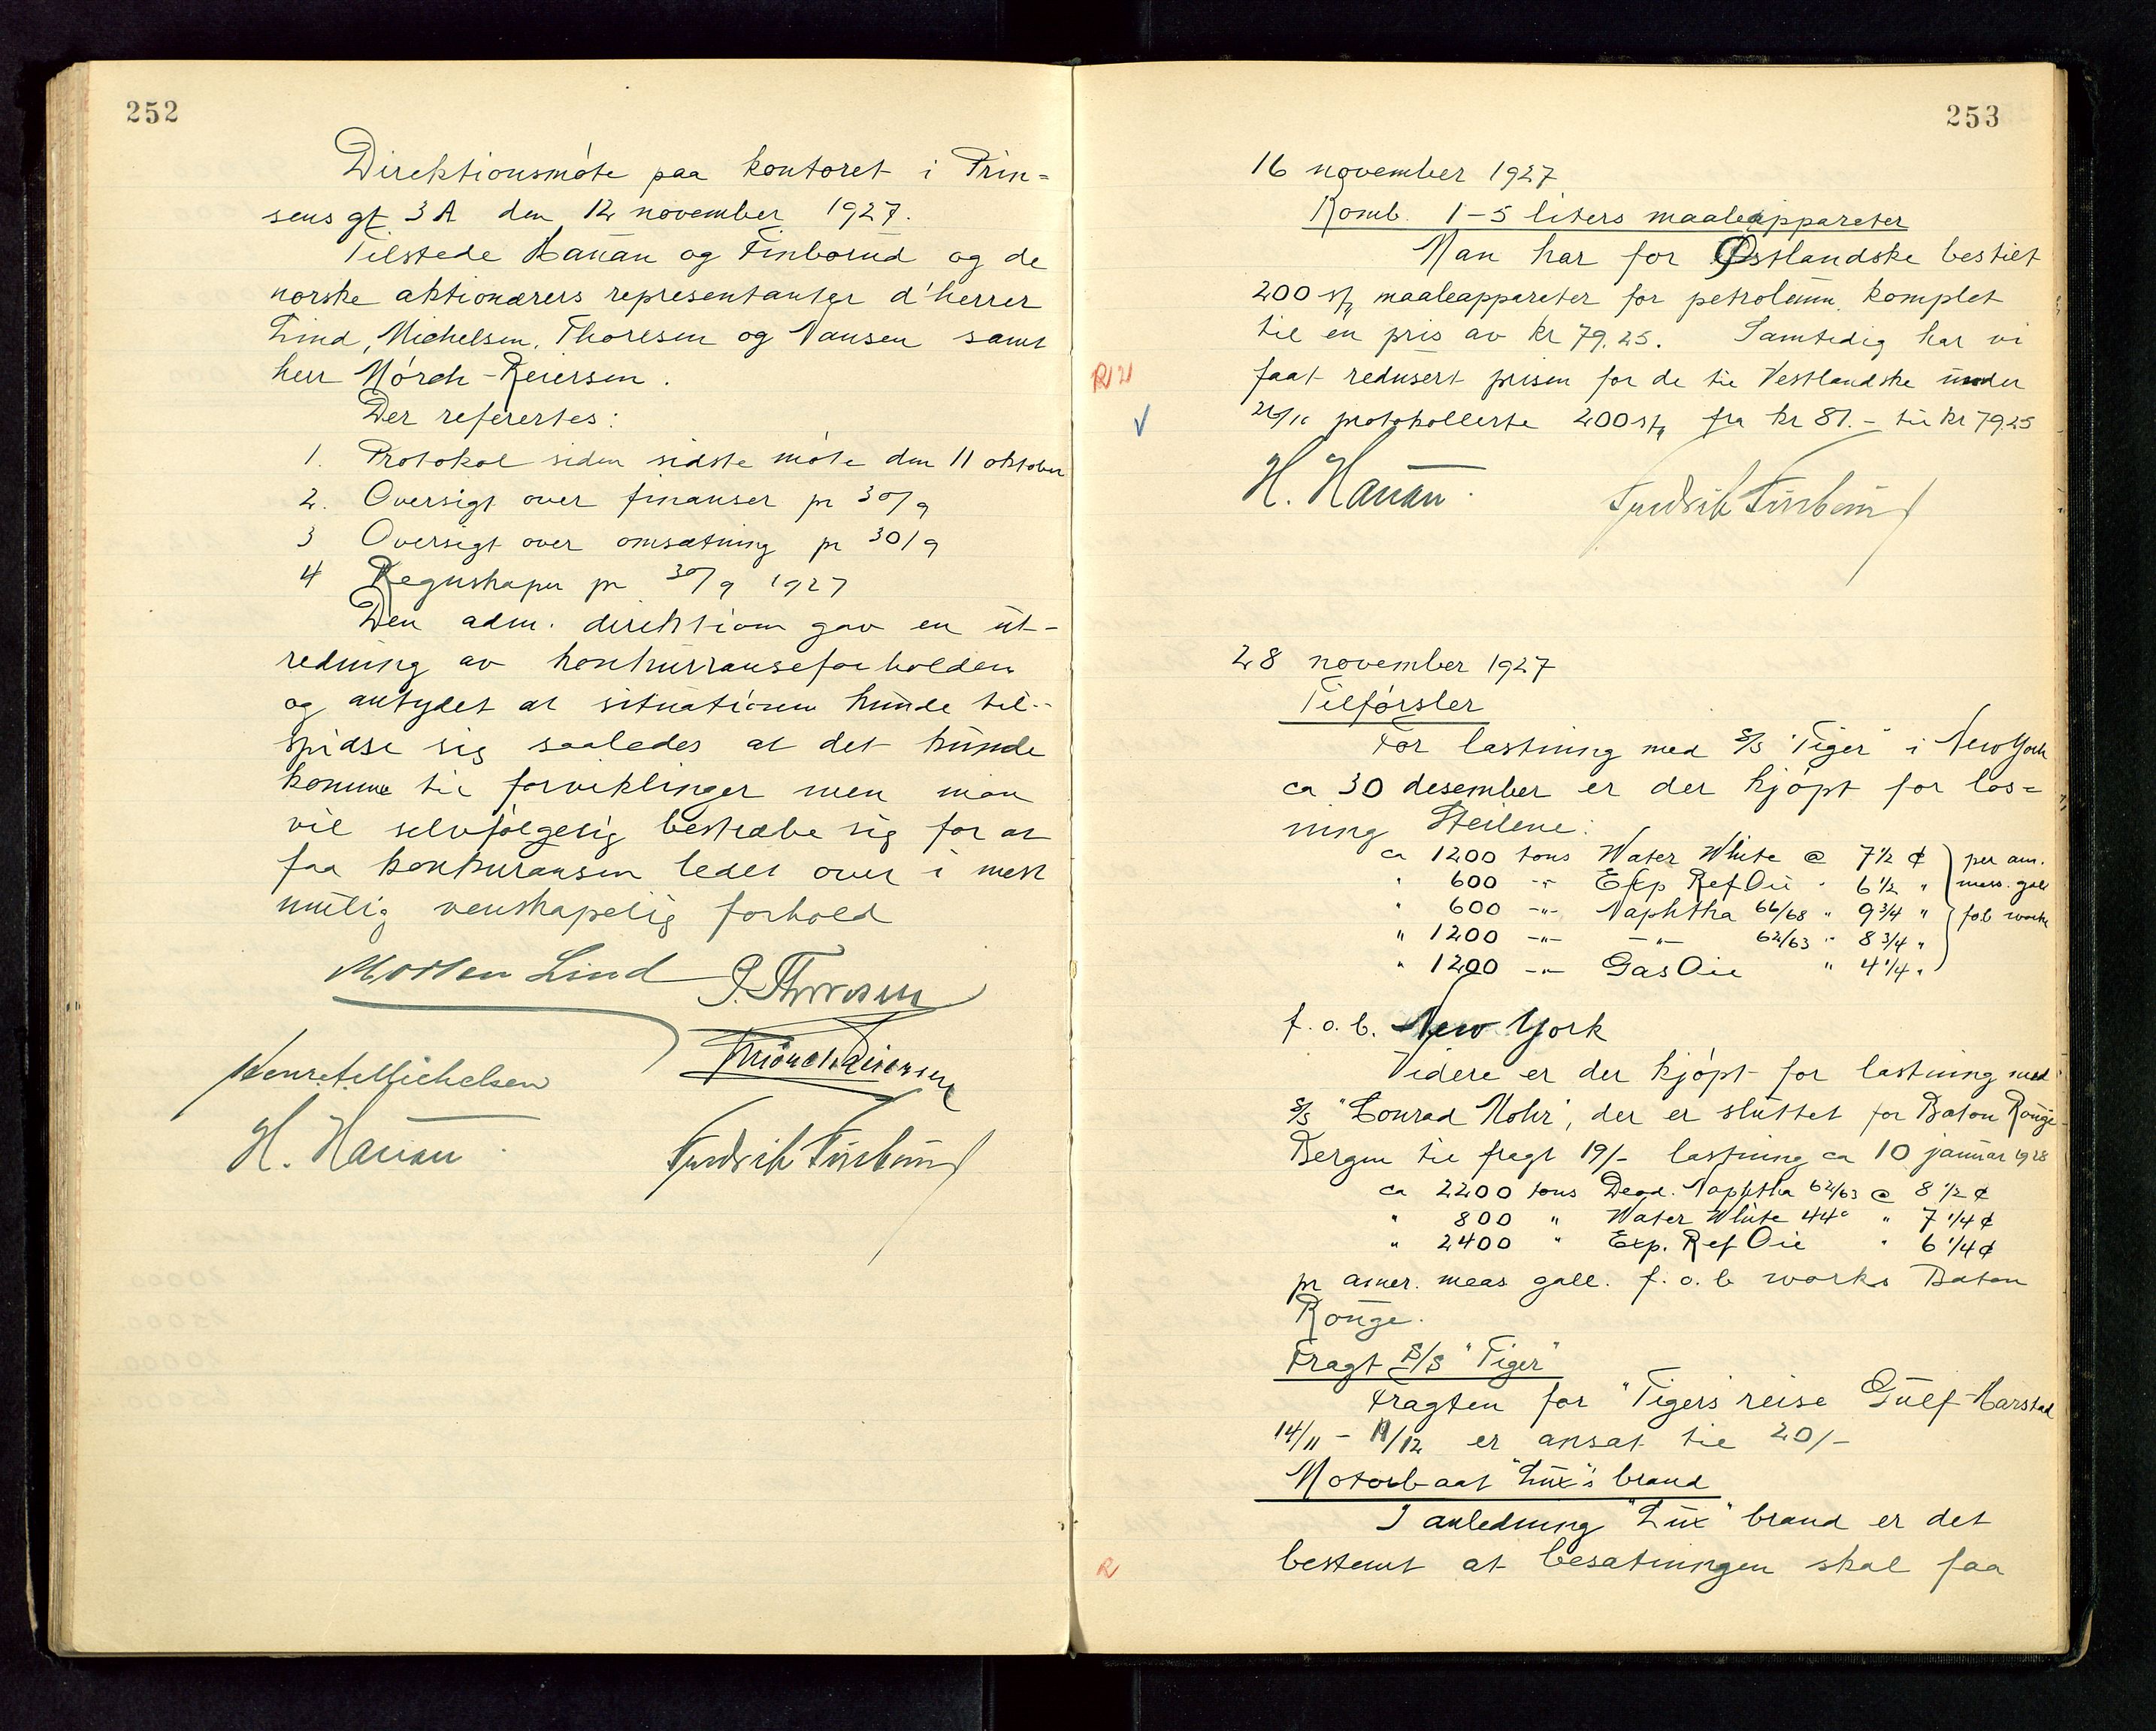 252
Direktionsmøte paa kontoret i Prin=
sens gt 3A den 12 november 1927.
Tilstede Hauan og Finborud og de
norske aktionærers representanter d'herrer
Lind, Michelsen, Thoresen og Nansen samt
herr Mørch-Reiersen.
Der refereres:
1. Protokol siden sidste møte den 11 oktober
2. Oversigt over finanser pr 30/9
3 Oversigt over omsætning pr 30/9
4 Regnskaper pr 30/9 1927
Den adm. direktion gav en ut-
redning av konkurranseforholden
og antydet at situationen kunde til-
spidse sig saaledes at det kunde
komme til forviklinger men man
vil selvfølgelig bestræbe sig for at
faa konkuransen ledet over i mest
mulig venskapelig forhold
Morten Lind
Henrik Michelsen
H. Hauan
253
16 november 1927
Komb. 1-5 liters maaleapparater
Man har for Østlandske bestilt
200 st, maaleapparater for petroleum komplet
til en pris av kr 79.25. Samtidig har vi
R
faat redusert prisen for de til Vestlandske under
protokollerte 200 st, fra kr 81.- til kr 79.25
H. Hauan
28 november 1927
Tilførsler
For lastning med S/S "Tiger" i New York
ca 30 desember er der kjøpt for los=
ning Steilene:
ca 1200 tons Water White @ 7 1/2 ¢ per am.
" 600 -"- Exp Ref Oil " 6 1/2 " meas. gall
" 600 -"- Naphtha 66/68 " 9 3/4 " fob works
" 1200 -"- -"- 62/63 " 8 3/4 "
" 1200 -"- Gas Oil " 4 1/4 "
f.o.b. New York
Videre er der kjøpt for lastning med
S/S "Conrad Mohr", der er sluttet for Baton Rouge-
Bergen til fragt 19/- lastning ca 10 januar 1928
ca 2200 tons Deod. Naphtha 62/63 @ 8 1/2 ¢
" 800 " Water White 44° " 7 1/4 ¢
" 2400 " Exp. Ref Oil " 6 1/4 ¢
pr amer. meas gall. f.o.b works Baton
Rouge.
Fragt S/S "Tiger"
Fragten for "Tigers" reise Gulf-Harstad
14/11 - 11/12 er ansat til 20/-
Motorbaat "Lux"'s brand
I anledning "Lux" brand er det
R
bestemt at besætningen skal faa